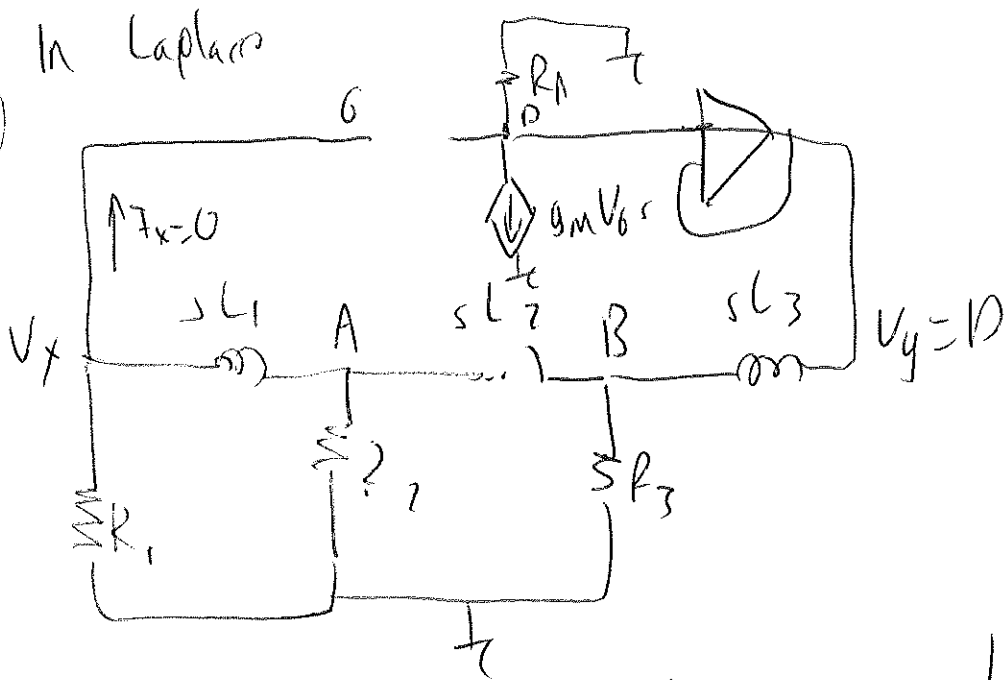 In Laplace
)
G
RΛ
D
↑ Ix=0
gmVGS
sL1
A
sL2
B
sL3
Vx
Vy=D
R1
R3